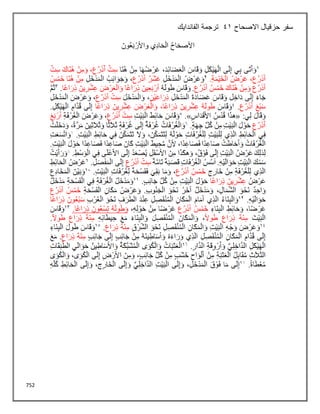 سفر حزقيال الاصحاح ٤١ ترجمة الفاندايك
الأصحَاحُ الْحَادِي وَالأَرْبَعُونَ
١وَأَتَى بِي إِلَى الْهَيْكَلِ وَقَاسَ الْعَضَائِدَ، عَرْضُهَا مِنْ هُنَا سِتُّ أَذْرُعٍ، وَمِنْ هُنَاكَ سِتُّ
أَذْرُعٍ، عَرْضُ الْخَيْمَةِ. ٢وَعَرْضُ الْمَدْخَلِ عَشَرُ أَذْرُعٍ، وَجَوَانِبُ الْمَدْخَلِ مِنْ هُنَا خَمْسُ
أَذْرُعٍ وَمِنْ هُنَاكَ خَمْسُ أَذْرُعٍ. وَقَاسَ طُولَهُ أَرْبَعِينَ ذِرَاعًا وَالْعَرْضَ عِشْرِينَ ذِرَاعًا. ٣ثُمَّ
جَاءَ إِلَى دَاخِل وَقَاسَ عَضَادَةَ الْمَدْخَلِ ذِرَاعَيْنِ، وَالْمَدْخَلَ سِتَّ أَذْرُعٍ، وَعَرْضَ الْمَدْخَلِ
سَبْعَ أَذْرُعٍ. ٤وَقَاسَ طُولَهُ عِشْرِينَ ذِرَاعًا، وَالْعَرْضَ عِشْرِينَ ذِرَاعًا إِلَى قُدَّامِ الْهَيْكَلِ.
وَقَالَ لِي: «هذَا قُدْسُ الأَقْدَاسِ». ٥وَقَاسَ حَائِطَ الْبَيْتِ سِتَّ أَذْرُعٍ، وَعَرْضَ الْغُرْفَةِ أَرْبَعَ
أَذْرُعٍ حَوْلَ الْبَيْتِ مِنْ كُلِّ جِهَةٍ. ٦وَالْغُرُفَاتُ غُرْفَةٌ إِلَى غُرْفَةٍ ثَلاَثًا وَثَلاَثِينَ مَرَّةً، وَدَخَلَتْ
فِي الْحَائِطِ الَّذِي لِلْبَيْتِ لِلْغُرُفَاتِ حَوْلَهُ لِتَتَمَكَّنَ، وَلاَ تَتَمَكَّنَ فِي حَائِطِ الْبَيْتِ. ٧وَاتَّسَعَتِ
الْغُرُفَاتُ وَأَحَاطَتْ صَاعِدًا فَصَاعِدًا، لأَنَّ مُحِيطَ الْبَيْتِ كَانَ صَاعِدًا فَصَاعِدًا حَوْلَ الْبَيْتِ.
لِذلِكَ عَرْضُ الْبَيْتِ إِلَى فَوْقُ، وَهكَذَا مِنَ الأَسْفَلِ يُصْعَدُ إِلَى الأَعْلَى فِي الْوَسَطِ. ٨وَرَأَيْتُ
سَمْكَ الْبَيْتِ حَوَالَيْهِ. أُسُسُ الْغُرُفَاتِ قَصَبَةٌ تَامَّةٌ سِتُّ أَذْرُعٍ إِلَى الْمَفْصَلِ. ٩عَرْضُ الْحَائِطِ
الَّذِي لِلْغُرْفَةِ مِنْ خَارِجٍ خَمْسُ أَذْرُعٍ، وَمَا بَقِيَ فَفُسْحَةٌ لِغُرُفَاتِ الْبَيْتِ. ١٠وَبَيْنَ الْمَخَادِعِ
عَرْضُ عِشْرِينَ ذِرَاعًا حَوْلَ الْبَيْتِ مِنْ كُلِّ جَانِبٍ. ١١وَمَدْخَلُ الْغُرْفَةِ فِي الْفُسْحَةِ مَدْخَلٌ
وَاحِدٌ نَحْوَ الشِّمَالِ، وَمَدْخَلٌ آخَرُ نَحْوَ الْجَنُوبِ. وَعَرْضُ مَكَانِ الْفُسْحَةِ خَمْسُ أَذْرُعٍ
حَوَالَيْهِ. ١٢وَالْبِنَاءُ الَّذِي أَمَامَ الْمَكَانِ الْمُنْفَصِلِ عِنْدَ الطَّرَفِ نَحْوَ الْغَرْبِ سَبْعُونَ ذِرَاعًا
عَرْضًا، وَحَائِطُ الْبِنَاءِ خَمْسُ أَذْرُعٍ عَرْضًا مِنْ حَوْلِهِ، وَطُولُهُ تِسْعُونَ ذِرَاعًا. ١٣وَقَاسَ
الْبَيْتَ مِئَةَ ذِرَاعٍ طُولاً، وَالْمَكَانَ الْمُنْفَصِلَ وَالْبِنَاءَ مَعَ حِيطَانِهِ مِئَةَ ذِرَاعٍ طُولاً.
١٤وَعَرْضَ وَجْهِ الْبَيْتِ وَالْمَكَانِ الْمُنْفَصِلِ نَحْوَ الشَّرْقِ مِئَةَ ذِرَاعٍ. ١٥وَقَاسَ طُولَ الْبِنَاءِ
إِلَى قُدَّامِ الْمَكَانِ الْمُنْفَصِلِ الَّذِي وَرَاءَهُ وَأَسَاطِينَهُ مِنْ جَانِبٍ إِلَى جَانِبٍ مِئَةَ ذِرَاعٍ، مَعَ
الْهَيْكَلِ الدَّاخِلِيِّ وَأَرْوِقَةِ الدَّارِ. ١٦الْعَتَبَاتُ وَالْكُوَى الْمُشَبَّكَةُ وَالأَسَاطِينُ حَوَالَيِ الطَّبَقَاتِ
الثَّلاَثِ مُقَابِلَ الْعَتَبَةِ مِنْ أَلْوَاحِ خَشَبٍ مِنْ كُلِّ جَانِبٍ، وَمِنَ الأَرْضِ إِلَى الْكُوَى، وَالْكُوَى
مُغَطَّاةٌ. ١٧إِلَى مَا فَوْقَ الْمَدْخَلِ، وَإِلَى الْبَيْتِ الدَّاخِلِيِّ وَإِلَى الْخَارِجِ، وَإِلَى الْحَائِطِ كُلِّهِ
752